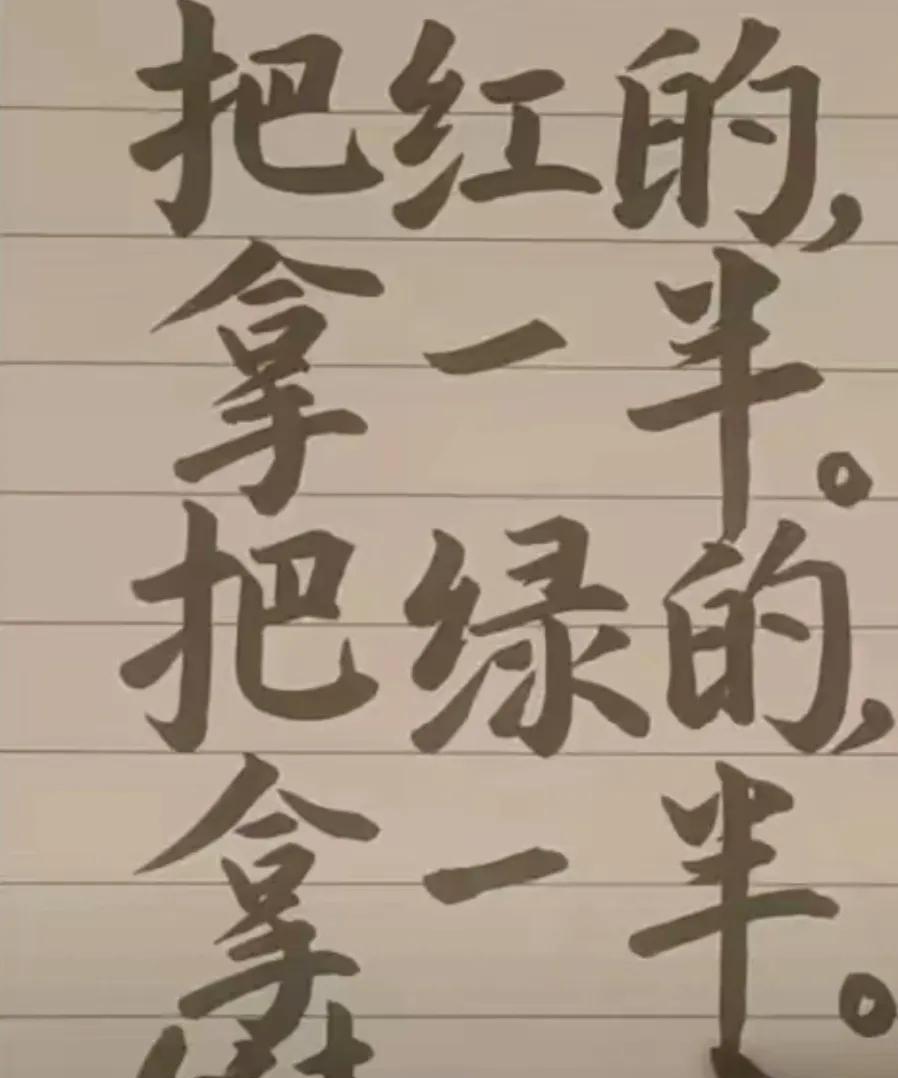 把红的,
拿一半。
把绿的,
拿一半。